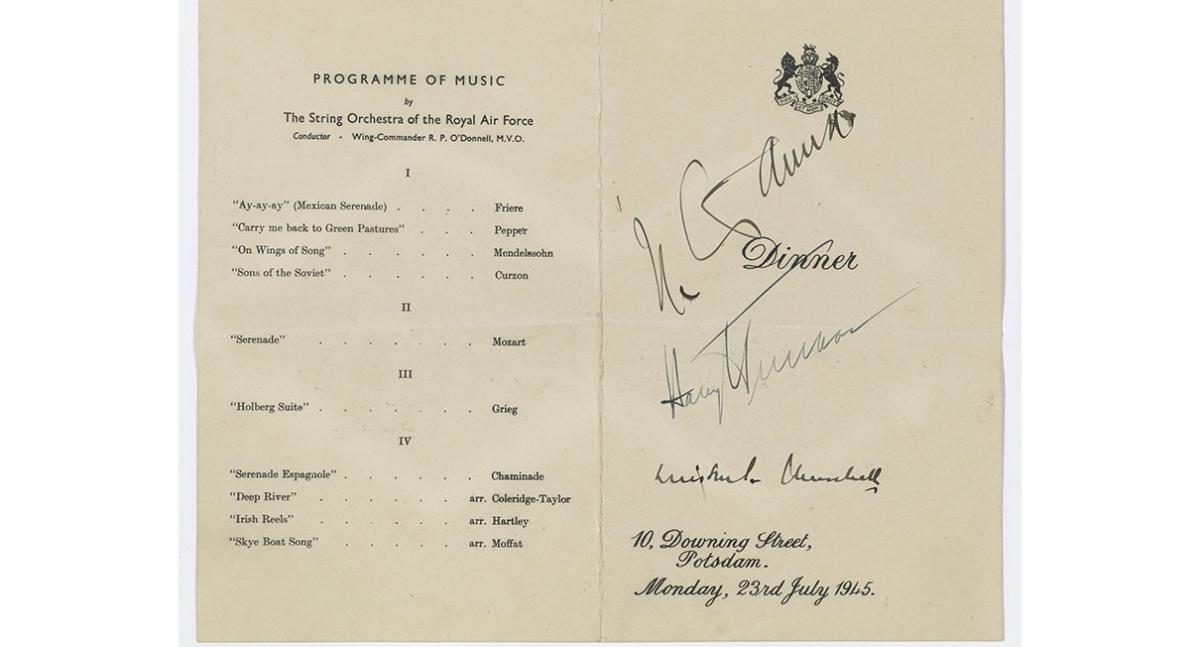 PROGRAMME OF MUSIC
by
The String Orchestra of the Royal Air Force
Conductor - Wing-Commander R. P. O'Donnell, M.V.O.
I
"Ay-ay-ay" (Mexican Serenade) . . . . Friere
"Carry me back to Green Pastures" . . . Pepper
"On Wings of Song" . . . . . . Mendelssohn
"Sons of the Soviet" . . . . . . Curzon
II
"Serenade" . . . . . . . Mozart
III
"Holberg Suite" . . . . . . . Grieg
IV
"Serenade Espagnole" . . . . . . Chaminade
"Deep River" . . . . . . arr. Coleridge-Taylor
"Irish Reels" . . . . . . arr. Hartley
"Skye Boat Song" . . . . . arr. Moffat
Dinner
Harry Truman
Winston Churchill
10, Downing Street,
Potsdam.
Monday, 23rd July 1945.